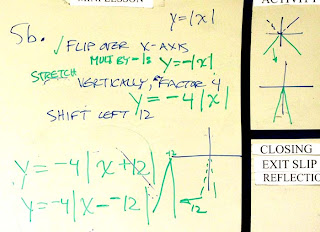 MINI LESSON
y=|x|
5b.
√ FLIP OVER X-AXIS
MULT BY -1s y=-|x|
STRETCH VERTICALLY, FACTOR 4
y=-4|x|
SHIFT LEFT 12
y=-4|x+12|
y=-4|x--12|
-12
12
ACTIVITY
CLOSING
EXIT SLIP
REFLECTIO